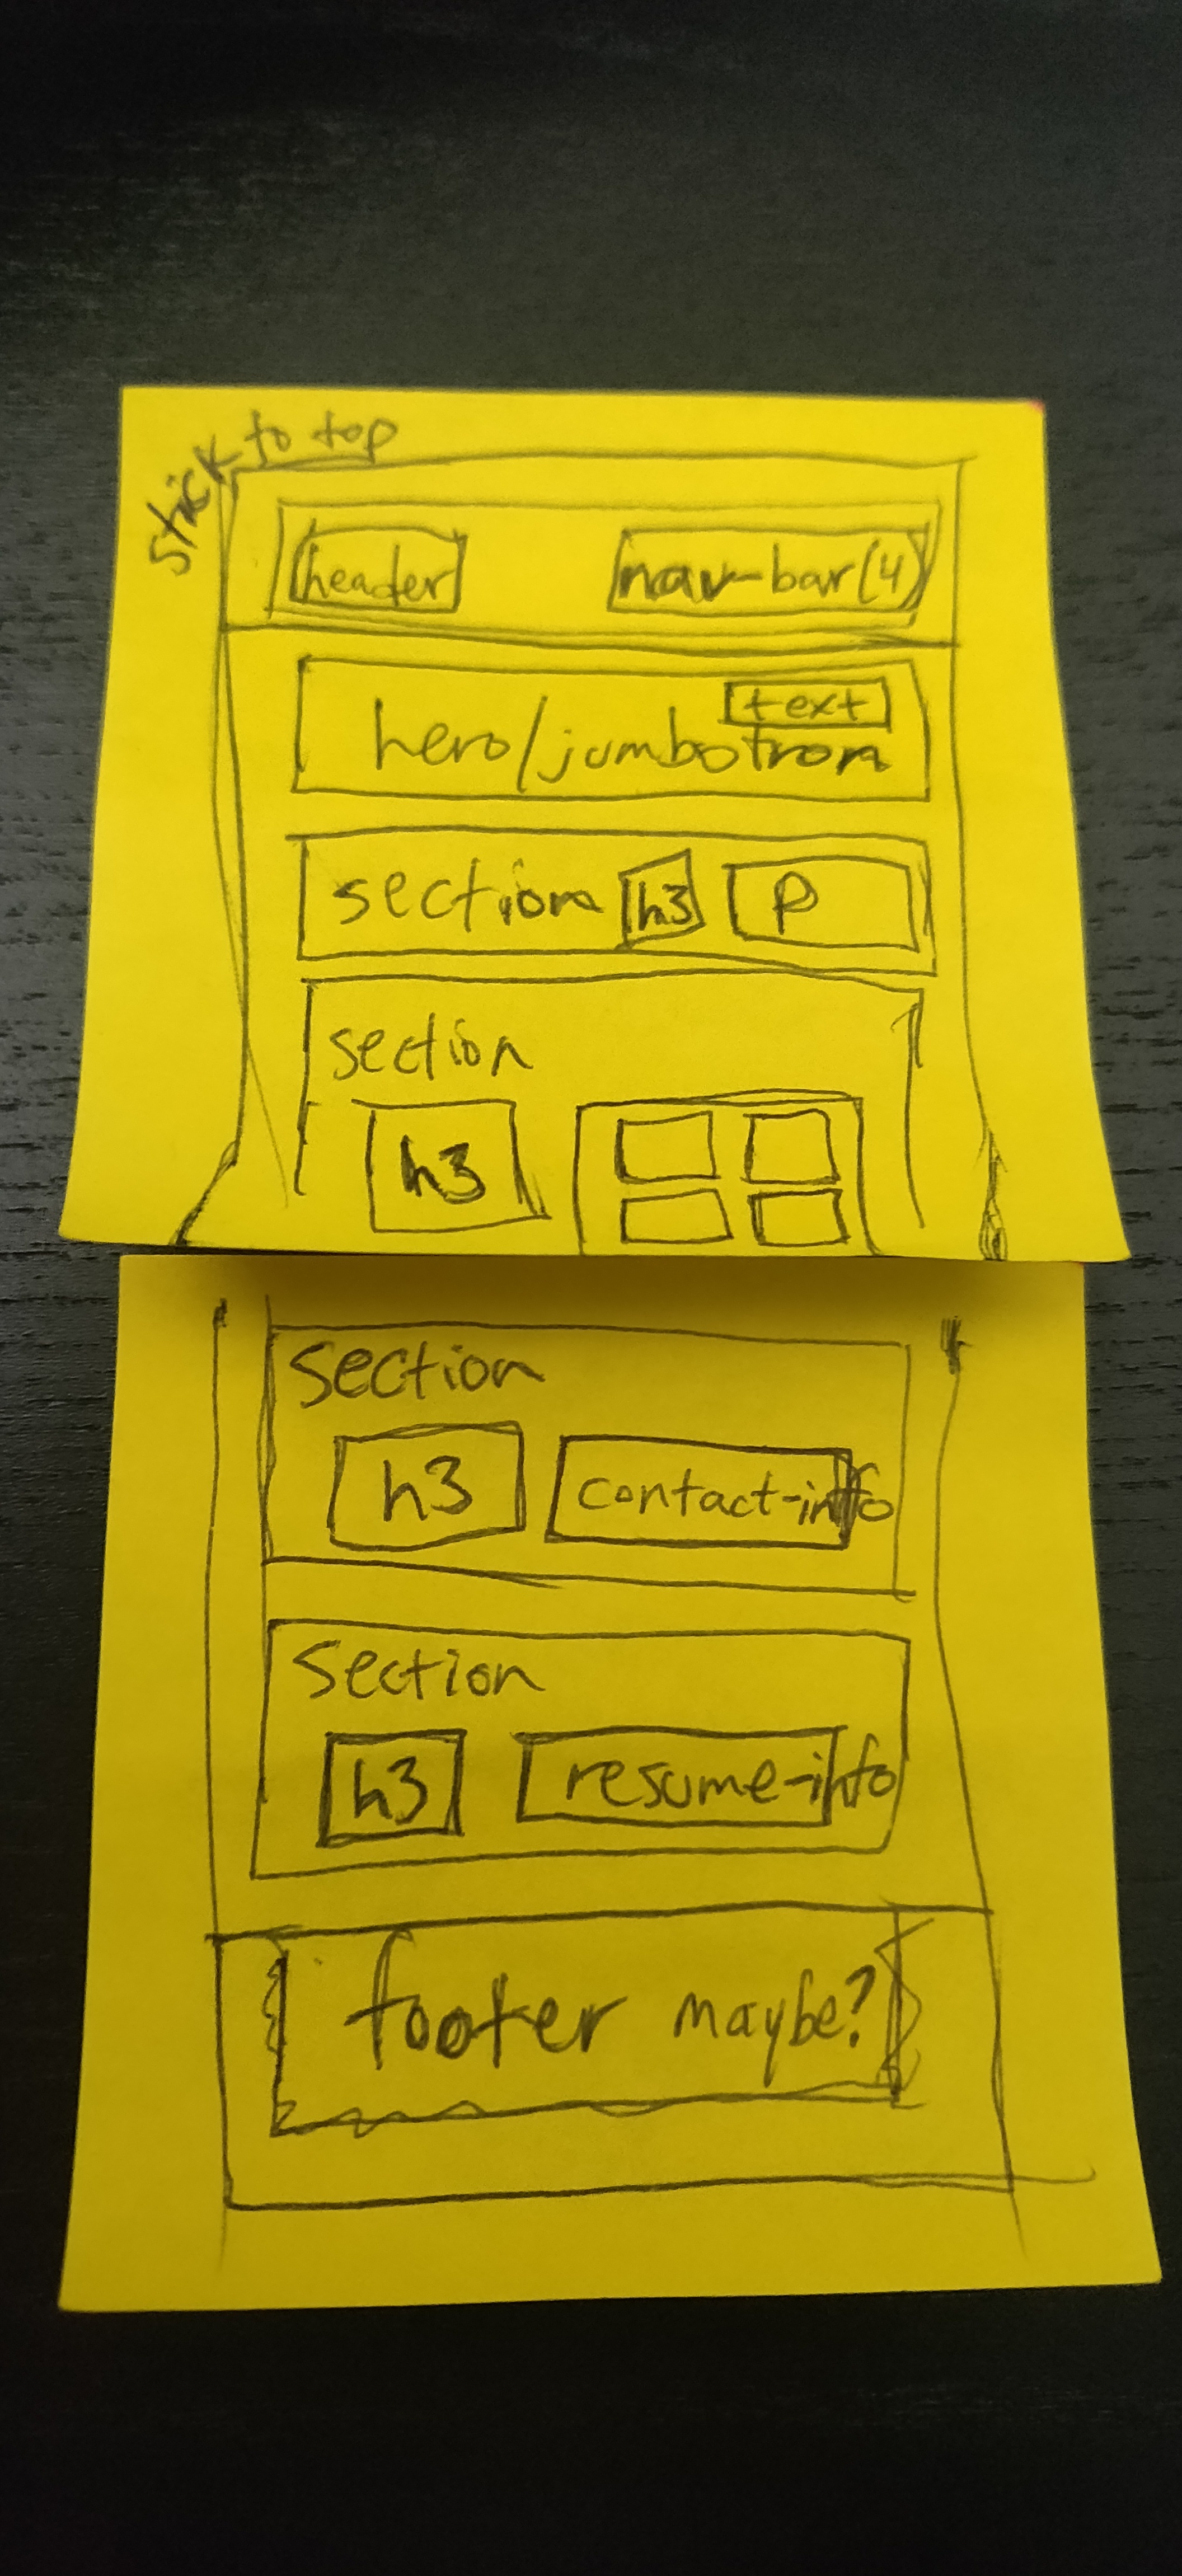 stick to top
header nav-bar(4)
text
hero/jumbotron
section h3 p
section
h3
section
h3 contact-info
section
h3 resume-info
footer maybe?